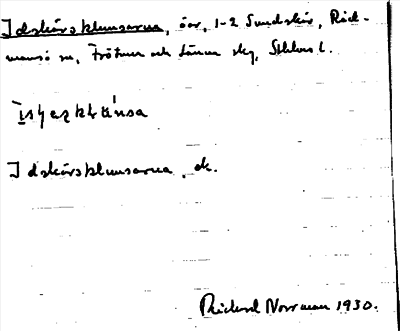 Idskärsklumsarna, öar, 1-2 Sundskär, Råd-
mansö sn, Frötuna och Länna skg, Sthlms l.
Idskärsklumsarna, dk.
Rickard Norrman 1930.